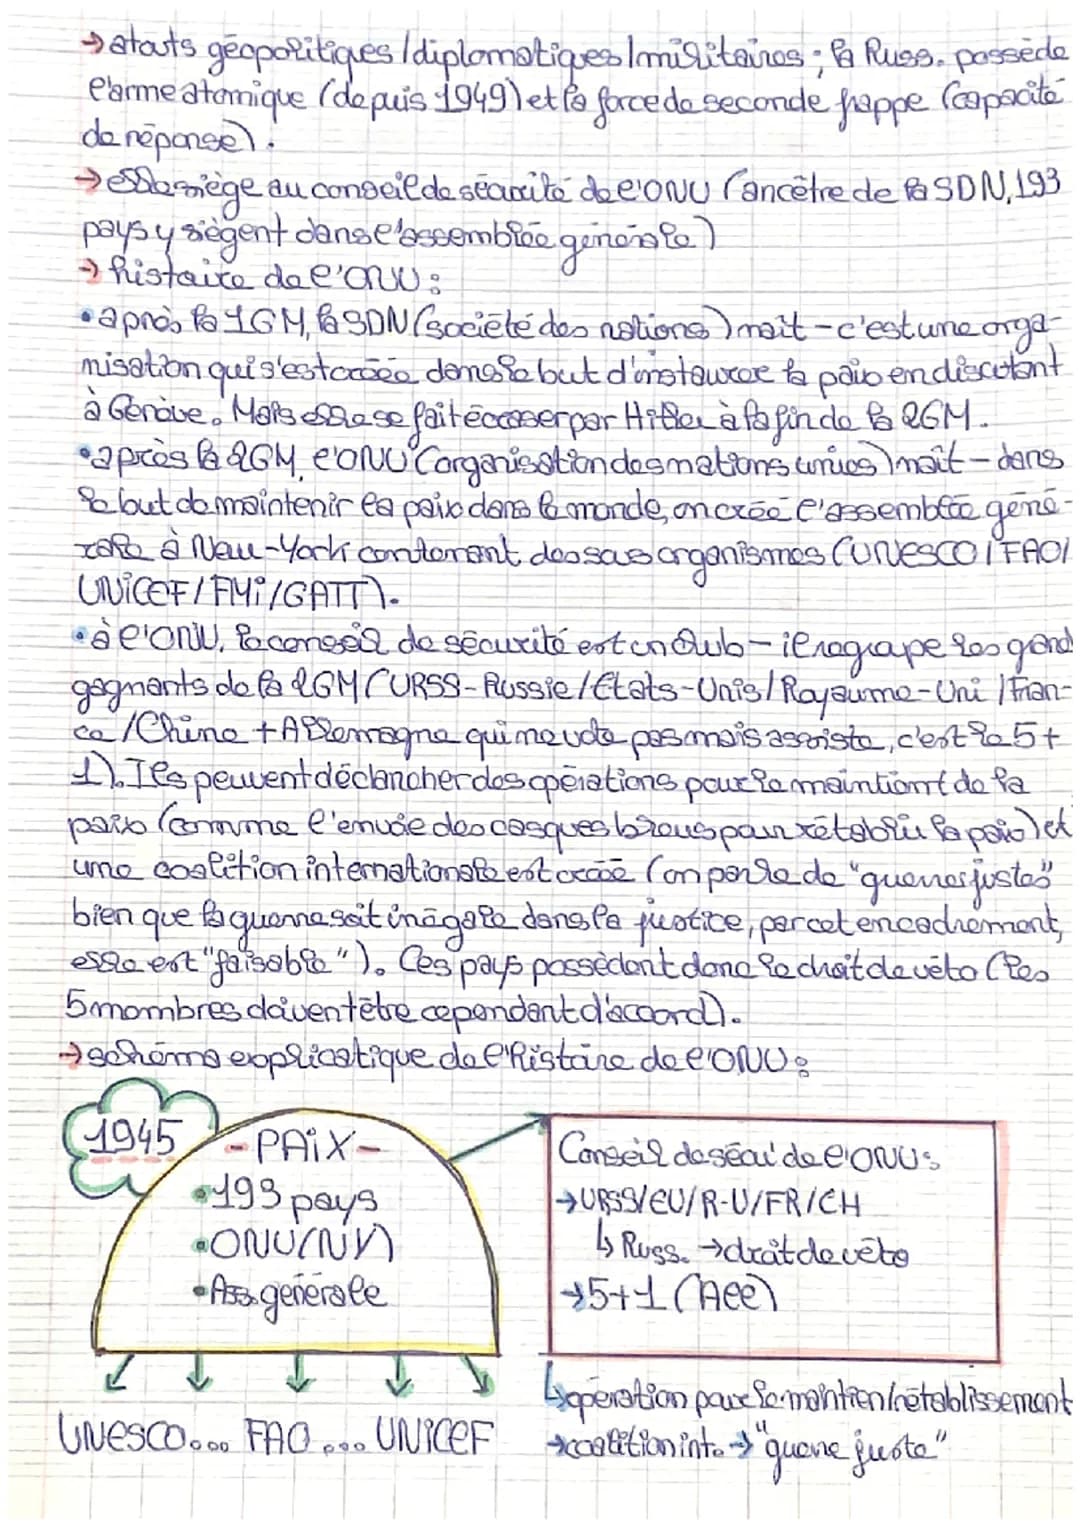 → atouts géopolitiques/diplomatiques/militaires : la Russ. possède
l'arme atomique (depuis 1949) et la force de seconde frappe (capacité
de réponse).
→ elle siège au conseil de sécurité de l'ONU (ancêtre de la SDN, 193
pays y siègent dans l'assemblée générale)
→ histoire de l'ONU :
• après la 1GM, la SDN (société des nations) naît - c'est une orga-
nisation qui s'est créée dans le but d'instaurer la paix en discutant
à Genève. Mais elle se fait écraser par Hitler à la fin de la 2GM.
• après la 2GM, l'ONU (organisation des nations unies) naît - dans
le but de maintenir la paix dans le monde, on créé l'assemblée géné-
rale à New-York contenant des sous organismes (UNESCO/FAO/
UNICEF/FMI/GATT).
• à l'ONU, le conseil de sécurité est un club - il regrape les grand
gagnants de la 2GM (URSS-Russie/Etats-Unis/Royaume-Uni/Fran-
ce/Chine + Allemagne qui ne vote pas mais assiste, c'est le 5+
1). Ils peuvent déclancher des opérations pour le maintient de la
paix (comme l'envoie des casques bleus pour rétablir la paix) et
une coalition internationale est créée (on parle de "guerres justes"
bien que la guerre soit inégale dans la justice, par cet encadrement,
elle est "faisable"). Ces pays possèdent donc le droit de véto (les
5 membres doivent être cependant d'accord).
→ schéma explicatique de l'histoire de l'ONU :
1945
- PAIX -
• 193 pays
• ONU (NY)
• Ass. générale
UNESCO... FAO... UNICEF
Conseil de sécu' de l'ONU :
→ URSS/EU/R-U/FR/CH
↳ Russ. → droit de véto
→ 5+1 (All)
↳ opération pour le maintien/rétablissement
→ coalition int. → "guerre juste"